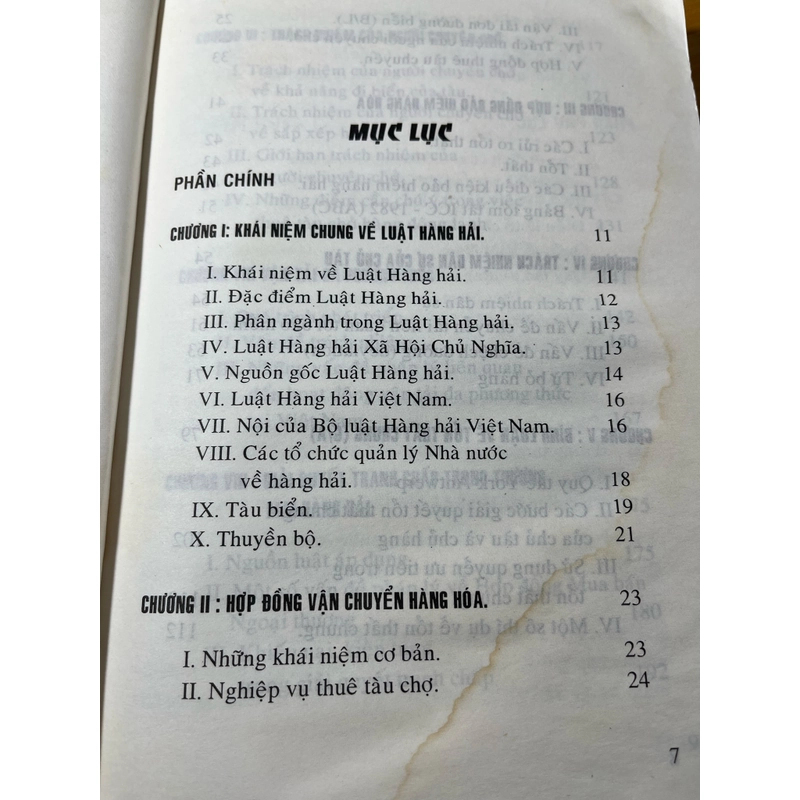 MỤC LỤC
PHẦN CHÍNH
CHƯƠNG I: KHÁI NIỆM CHUNG VỀ LUẬT HÀNG HẢI. 11
I. Khái niệm về Luật Hàng hải. 11
II. Đặc điểm Luật Hàng hải. 12
III. Phân ngành trong Luật Hàng hải. 13
IV. Luật Hàng hải Xã Hội Chủ Nghĩa. 13
V. Nguồn gốc Luật Hàng hải. 14
VI. Luật Hàng hải Việt Nam. 16
VII. Nội của Bộ luật Hàng hải Việt Nam. 16
VIII. Các tổ chức quản lý Nhà nước
về hàng hải. 18
IX. Tàu biển. 19
X. Thuyền bộ. 21
CHƯƠNG II : HỢP ĐỒNG VẬN CHUYỂN HÀNG HÓA. 23
I. Những khái niệm cơ bản. 23
II. Nghiệp vụ thuê tàu chợ. 24
7